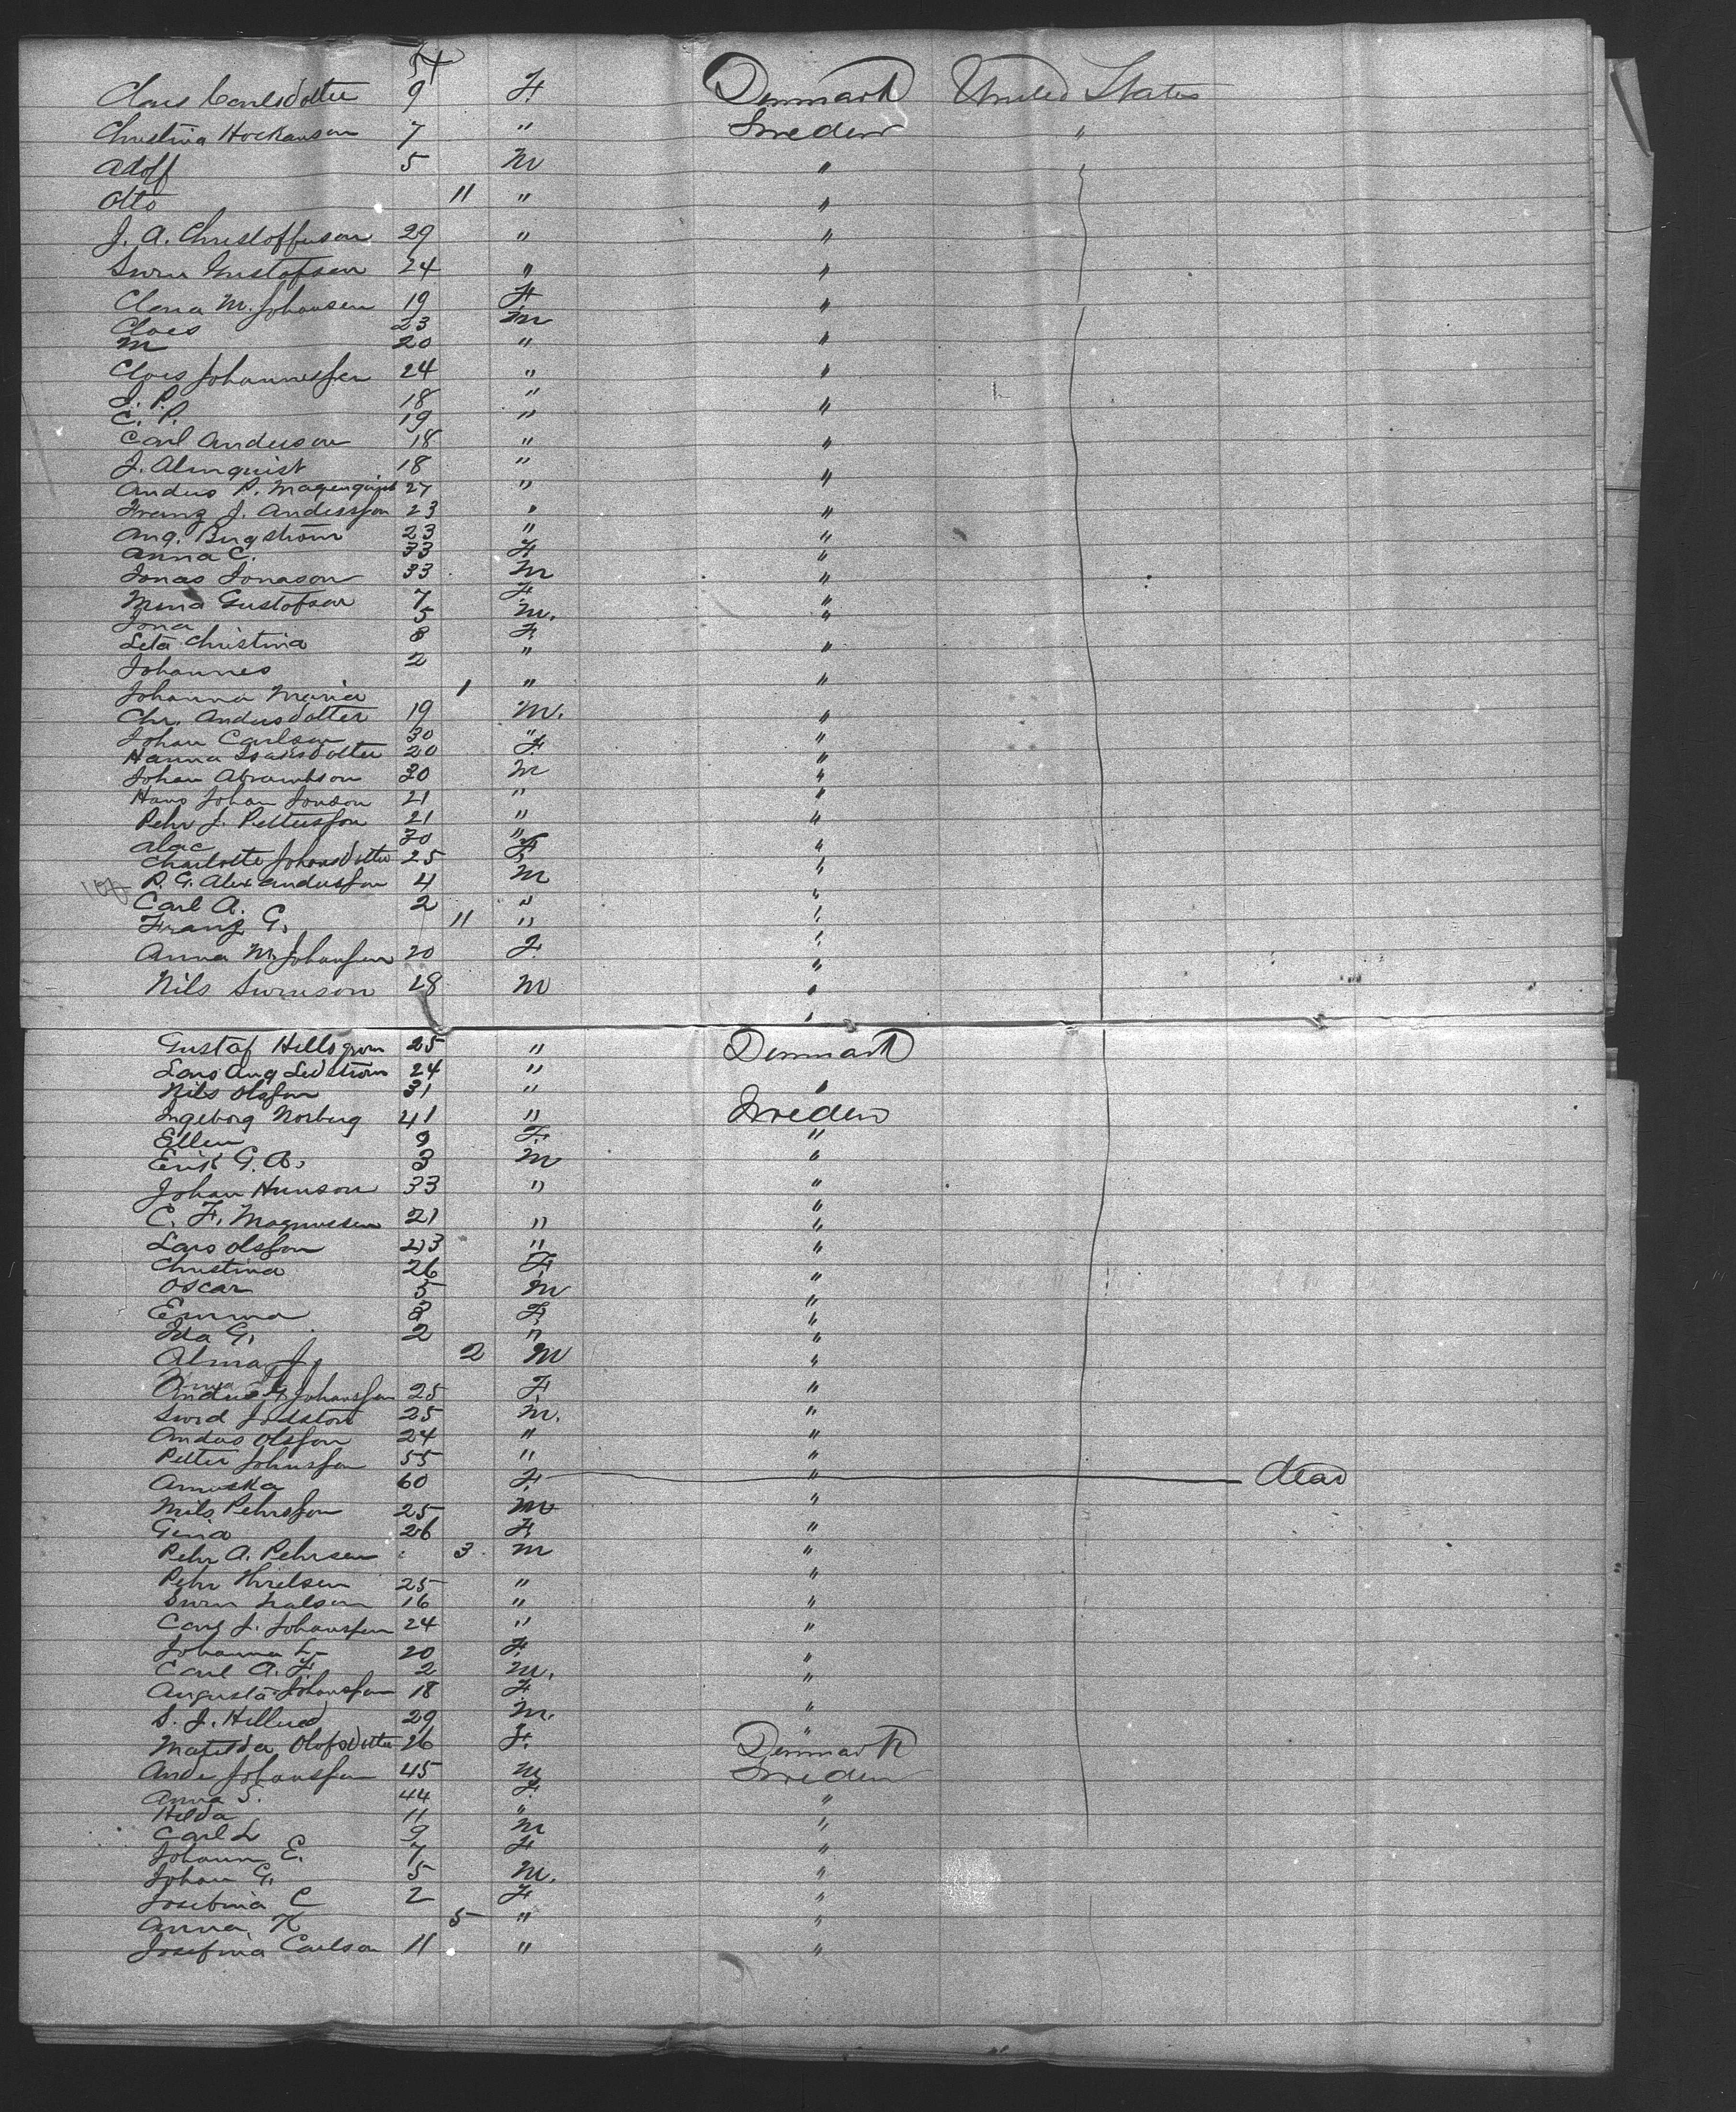 54
Claes Carlsdotter 9 F. Denmark United States
Christina Hockanson 7 " Sweden "
Adolf 5 M " "
Otto 11 " "
J. A. Christofferson 29 " "
Sven Gustafson 24 " "
Clara M. Johansen 19 F. "
Claes 23 M
M 20 " "
Claes Johannesson 24 " "
J. P. 18 "
C. P. 19 " "
Carl Anderson 18 " "
J. Almquist 18 " "
Anders P. 27 "
Franz J. Andersson 23 " "
Aug. Bergstrom 23 " "
Anna C. 33 F. "
Jonas Jonason 33 M "
Mina Gustafson 7 F. "
Jona 5 M. "
Leta Christina 8 F.
Johannes 2 " "
Johanna Maria 1 " "
Chr. Andersdotter 19 M. "
Johan Carlson 30 " "
Hanna Isaksdotter 20 F. "
Johan Abramson 30 M "
Hans Johan Jonson 21 " "
Pehr J. Pettersson 21 " "
30 "
Charlotte Johansdotter 25 F. "
P. G. Alexandersson 4 M "
Carl A. 2 " "
Franz G. 11 " "
Anna M. Johansson 20 F. "
Nils Swenson 28 M "
Gustaf 25 " Denmark
Lars Aug 24 "
Nils Olsson 31 " "
Ingeborg Norberg 41 " Sweden
Ellen 9 F. "
Erik G. A. 3 M "
Johan Hunson 33 " "
C. F. Magnussen 21 " "
Lars Olsson 23 " "
Christina 26 F.
Oscar 5 M "
Emma 3 F. "
Ida G. 2 " "
Alma J. 2 M "
Johansson 25 F. "
25 M. "
Anders Olsson 24 " "
Petter Johnsson 55 " "
60 F. " dead
Nils Pehrsson 25 M "
26 F. "
Pehr A. Pehrsen 3 M "
Pehr 25 " "
Sven 16 "
Carl J. Johansson 24 " "
Johanna L. 20 F. "
Carl A. F. 2 M. "
Augusta Johansson 18 F. "
S. J. 29 M. "
Matilda Olofsdotter 26 F. Denmark
Ande Johansson 45 M Sweden
Anna S. 44 F. "
Hilda 11 "
Carl L 9 M "
Johann E. 7 F "
Johan G. 5 M. "
Josefina C 2 F "
Anna K 5 " "
Josefina Carlson 11 " "